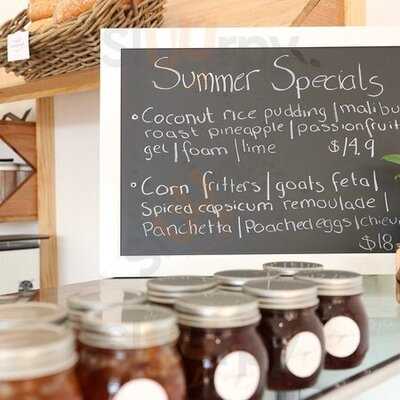 Summer Specials
• Coconut rice pudding | malibu
roast pineapple | passionfruit
gel | foam | lime $14.9
• Corn fritters | goats feta |
Spiced capsicum remoulade |
Panchetta | Poached eggs |
$18